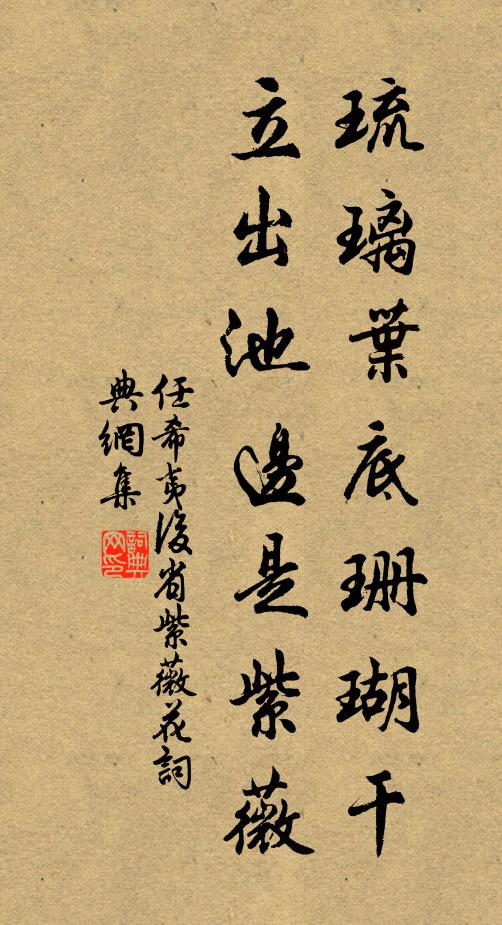 琉璃葉底珊瑚干
立出池邊是紫薇
任希夷後省紫薇花詞
典網集
詞典网印